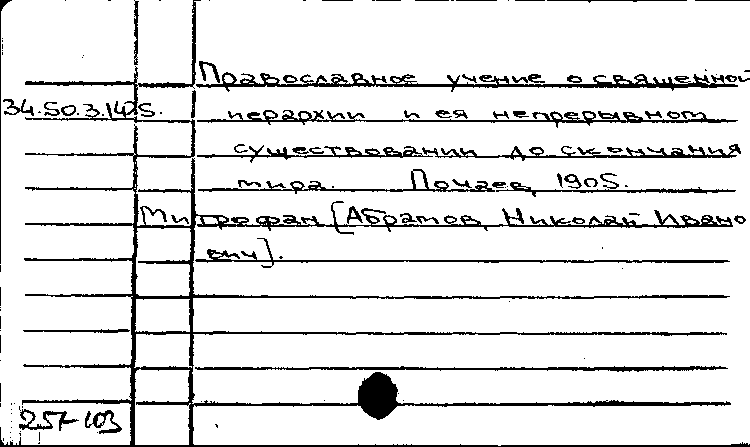 Православное учение о священной
34.50.3.142S. иерархии и ея непрерывном
существовании до скончания
мира. Почаев, 1905.
Митрофан [Абрамов, Николай Ивано
вич].
257-103